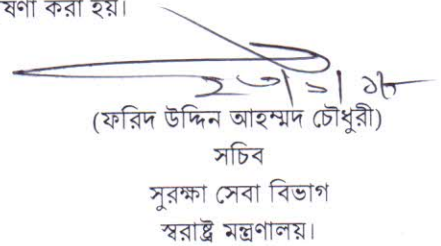 ষণা করা হয়।
(ফরিদ উদ্দিন আহম্মদ চৌধুরী)
সচিব
সুরক্ষা সেবা বিভাগ
স্বরাষ্ট্র মন্ত্রণালয়।